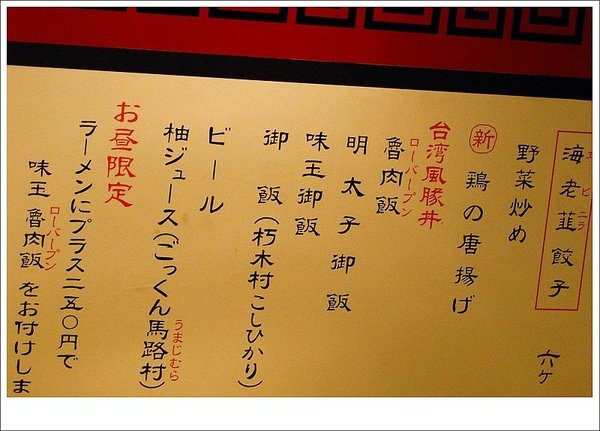 海老韮餃子 六ヶ
エビ ニラ
野菜炒め
新 鶏の唐揚げ
台湾風豚丼
魯肉飯
ローバープン
明太子御飯
味玉御飯
御飯(朽木村こしひかり)
ビール
柚ジュース(ごっくん馬路村)
うまじむら
お昼限定
ラーメンにプラス二五〇円で
味玉 魯肉飯をお付けしま
ローバープン